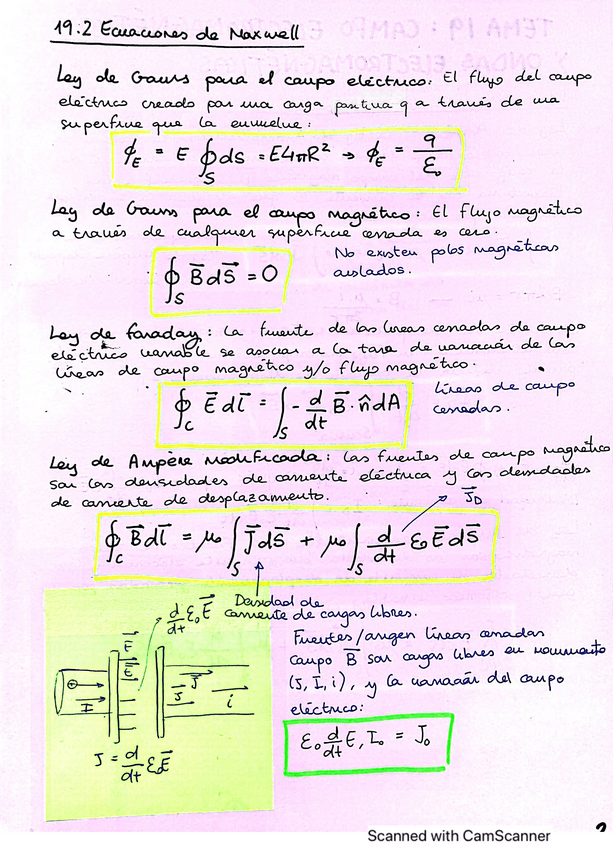 19.2 Ecuaciones de Maxwell
Ley de Gauss para el campo eléctrico: El flujo del campo
eléctrico creado por una carga positiva q a través de una
superficie que la envuelve:
ϕ_E = E ∮_S ds = E4πR² → ϕ_E = q/ε₀
Ley de Gauss para el campo magnético: El flujo magnético
a través de cualquier superficie cerrada es cero.
∮_S B⃗ dS⃗ = 0
No existen polos magnéticos
aislados.
Ley de Faraday: La fuente de las líneas cerradas de campo
eléctrico variable se asocian a la tasa de variación de las
líneas de campo magnético y/o flujo magnético.
∮_C E⃗ dl⃗ = ∫_S - d/dt B⃗ · n̂ dA
líneas de campo
cerradas.
Ley de Ampère modificada: las fuentes de campo magnético
son las densidades de corriente eléctrica y las densidades
de corriente de desplazamiento.
J⃗_D
∮_C B⃗ dl⃗ = μ₀ ∫_S J⃗ ds⃗ + μ₀ ∫_S d/dt ε₀ E⃗ ds⃗
d/dt ε₀ E⃗
Densidad de
corriente de cargas libres.
Fuentes/origen líneas cerradas
campo B⃗ son cargas libres en movimiento
(J, I, i), y la variación del campo
eléctrico:
ε₀ d/dt E, I₀ = J₀
E⃗
E⃗
+
I
J
J⃗
i
J = d/dt ε₀ E⃗
Scanned with CamScanner